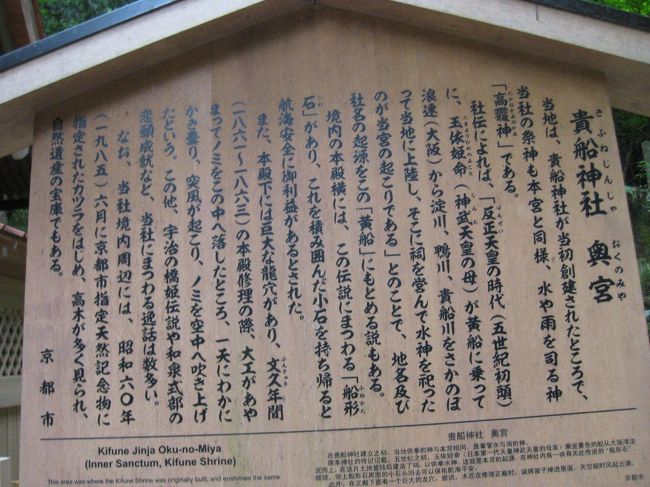 貴船神社 奥宮
きふねじんじゃ おくのみや
当地は、貴船神社が当初創建されたところで、
当社の祭神も本宮と同様、水や雨を司る神
「高龗神」である。
社伝によれば、「反正天皇の時代（五世紀初頭）
に、玉依姫命（神武天皇の母）が黄船に乗って
浪速（大阪）から淀川、鴨川、貴船川をさかのぼ
って当地に上陸し、そこに祠を営んで水神を祀った
のが当宮の起こりである」とのことで、地名及び
社名の起源をこの「黄船」にもとめる説もある。
境内の本殿横には、この伝説にまつわる「船形
石」があり、これを積み囲んだ小石を持ち帰ると
航海安全に御利益があるとされた。
また、本殿下には巨大な龍穴があり、文久年間
（一八六一〜一八六三）の本殿修理の際、大工があや
まってノミをこの中へ落したところ、一天にわかに
かき曇り、突風が起こり、ノミを空中へ吹き上げ
たという。この他、宇治の橋姫伝説や和泉式部の
恋願成就など、当社にまつわる逸話は数多い。
なお、当社境内周辺には、昭和六〇年
（一九八五）六月に京都市指定天然記念物に
指定されたカツラをはじめ、高木が多く見られ、
自然遺産の宝庫でもある。
京都市
Kifune Jinja Oku-no-Miya
(Inner Sanctum, Kifune Shrine)
This area was where the Kifune Shrine was originally built, and enshrines the same
贵船神社 奥宫